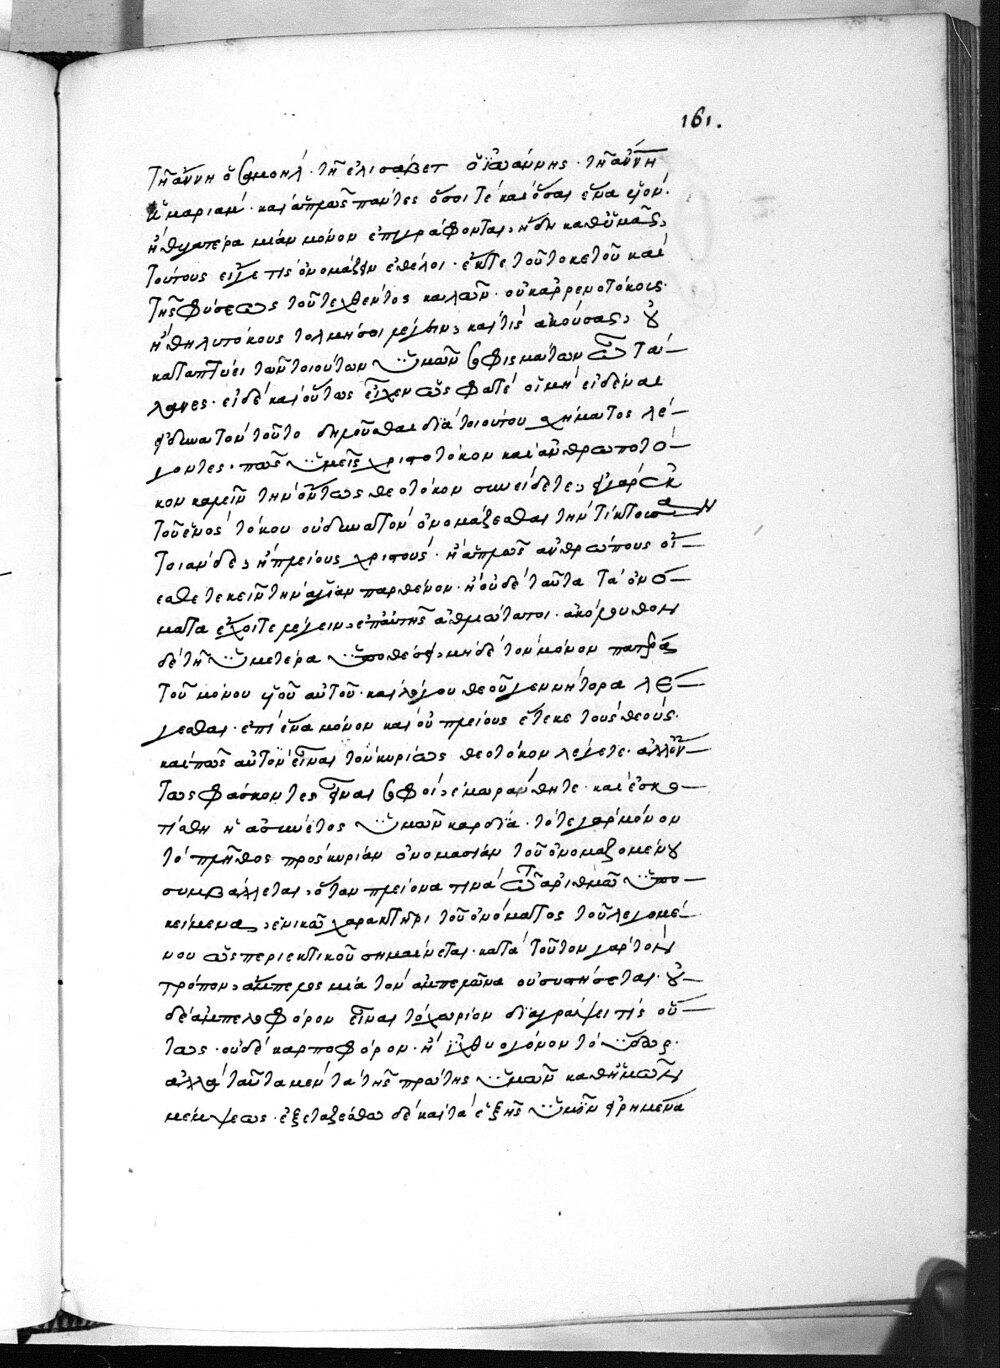 161.
τῆ ἄννη ὁ σαμουήλ· τῆ ἐλισάβετ ὁ ἰωάννης· τῆ ἄννη
ἡ μαριάμ· καὶ ἁπλῶς πάντες ὅσοι τε καὶ ὅσαι ἕνα υἱόν·
ἢ θυγατέρα μίαν μόνον ἐπιγράφονται, ἤδη καθ' ὑμᾶς,
τούτους εἴγε τις ὀνομάζειν ἐθέλοι· ἔκ τε τοῦ τοκετοῦ καὶ
τῆς φύσεως τοῦ τεχθέντος καλῶν· οὐκ ἀρρενοτόκους·
ἢ θηλυτόκους τολμήσοι λέγειν, καὶ τίς ἀκούσας, οὐ
καταπτύει τῶν τοιούτων ὑμῶν σοφισμάτων ὦ τά-
λανες· εἰ δὲ καὶ οὕτως εἶχεν ὥς φατέ οἱ μὴ εἰδέναι
δυνατὸν τοῦτο δημοῦσθαι διὰ τοιούτου σχήματος λέ-
γοντες· πῶς ὑμεῖς χριστοτόκον καὶ ἀνθρωποτό-
κον καλεῖν τὴν ὄντως θεοτόκον συνείδετε, εἰ γὰρ ἐκ
τοῦ ἑνὸς τόκου οὐ δυνατὸν ὀνομάζεσθαι τὴν τίκτουσαν
τοιάνδε, ἢ πλείους χριστούς· ἢ ἁπλῶς ἀνθρώπους οἴ-
εσθε τεκεῖν τὴν ἁγίαν παρθένον· ἢ οὐδὲ ταῦτα τὰ ὀνό-
ματα ἔχοιτε λέγειν, ἐπ' αὐτῆς ἀθλιώτατοι· ἀκόλουθον
δὲ τῆ ὑμετέρα ὑποθέσει, μηδὲ τὸν μόνον πατέρα
τοῦ μόνου υἱοῦ αὐτοῦ· καὶ λόγου θεοῦ γεννήτορα λέ-
γεσθαι· ἐπεὶ ἕνα μόνον καὶ οὐ πλείους ἔτεκε τοὺς θεούς·
καὶ πῶς αὐτὸν εἶναι τὸν κυρίως θεοτόκον λέγετε· ἀλλ' ὄν-
τως φάσκοντες εἶναι σοφοί, ἐμωράνθητε· καὶ ἐσκο-
τίσθη ἡ ἀσύνετος ὑμῶν καρδία· τότε γὰρ μόνον
τὸ πλῆθος πρὸς κυρίαν ὀνομασίαν τοῦ ὀνομαζομένου
συμβάλλεται, ὅταν πλείονα τινὰ τῶ ἀριθμῶ ὑπο-
κείμενα, ἑνικῶ χαρακτῆρι τοῦ ὀνόματος τοῦ λεγομέ-
νου ὡς περιεκτικοῦ σημαίνεται· κατὰ τοῦτον γὰρ τὸν
τρόπον, ἄμπελος μία τὸν ἀμπελῶνα οὐ συστήσεται· οὐ-
δὲ ἀμπελοφόρον εἶναι τὸ χωρίον διαγράψει τις οὕ-
τως· οὐδὲ καρποφόρον· ἢ ἰχθυογόνον τὸ ὕδωρ·
ἀλλὰ ταῦτα μὲν τὰ τῆς πρώτης ὑμῶν καθ' ἡμῶν
μέμψεως· ἐξεταζέσθω δὲ καὶ τὰ ἑξῆς ὑμῖν εἰρημένα